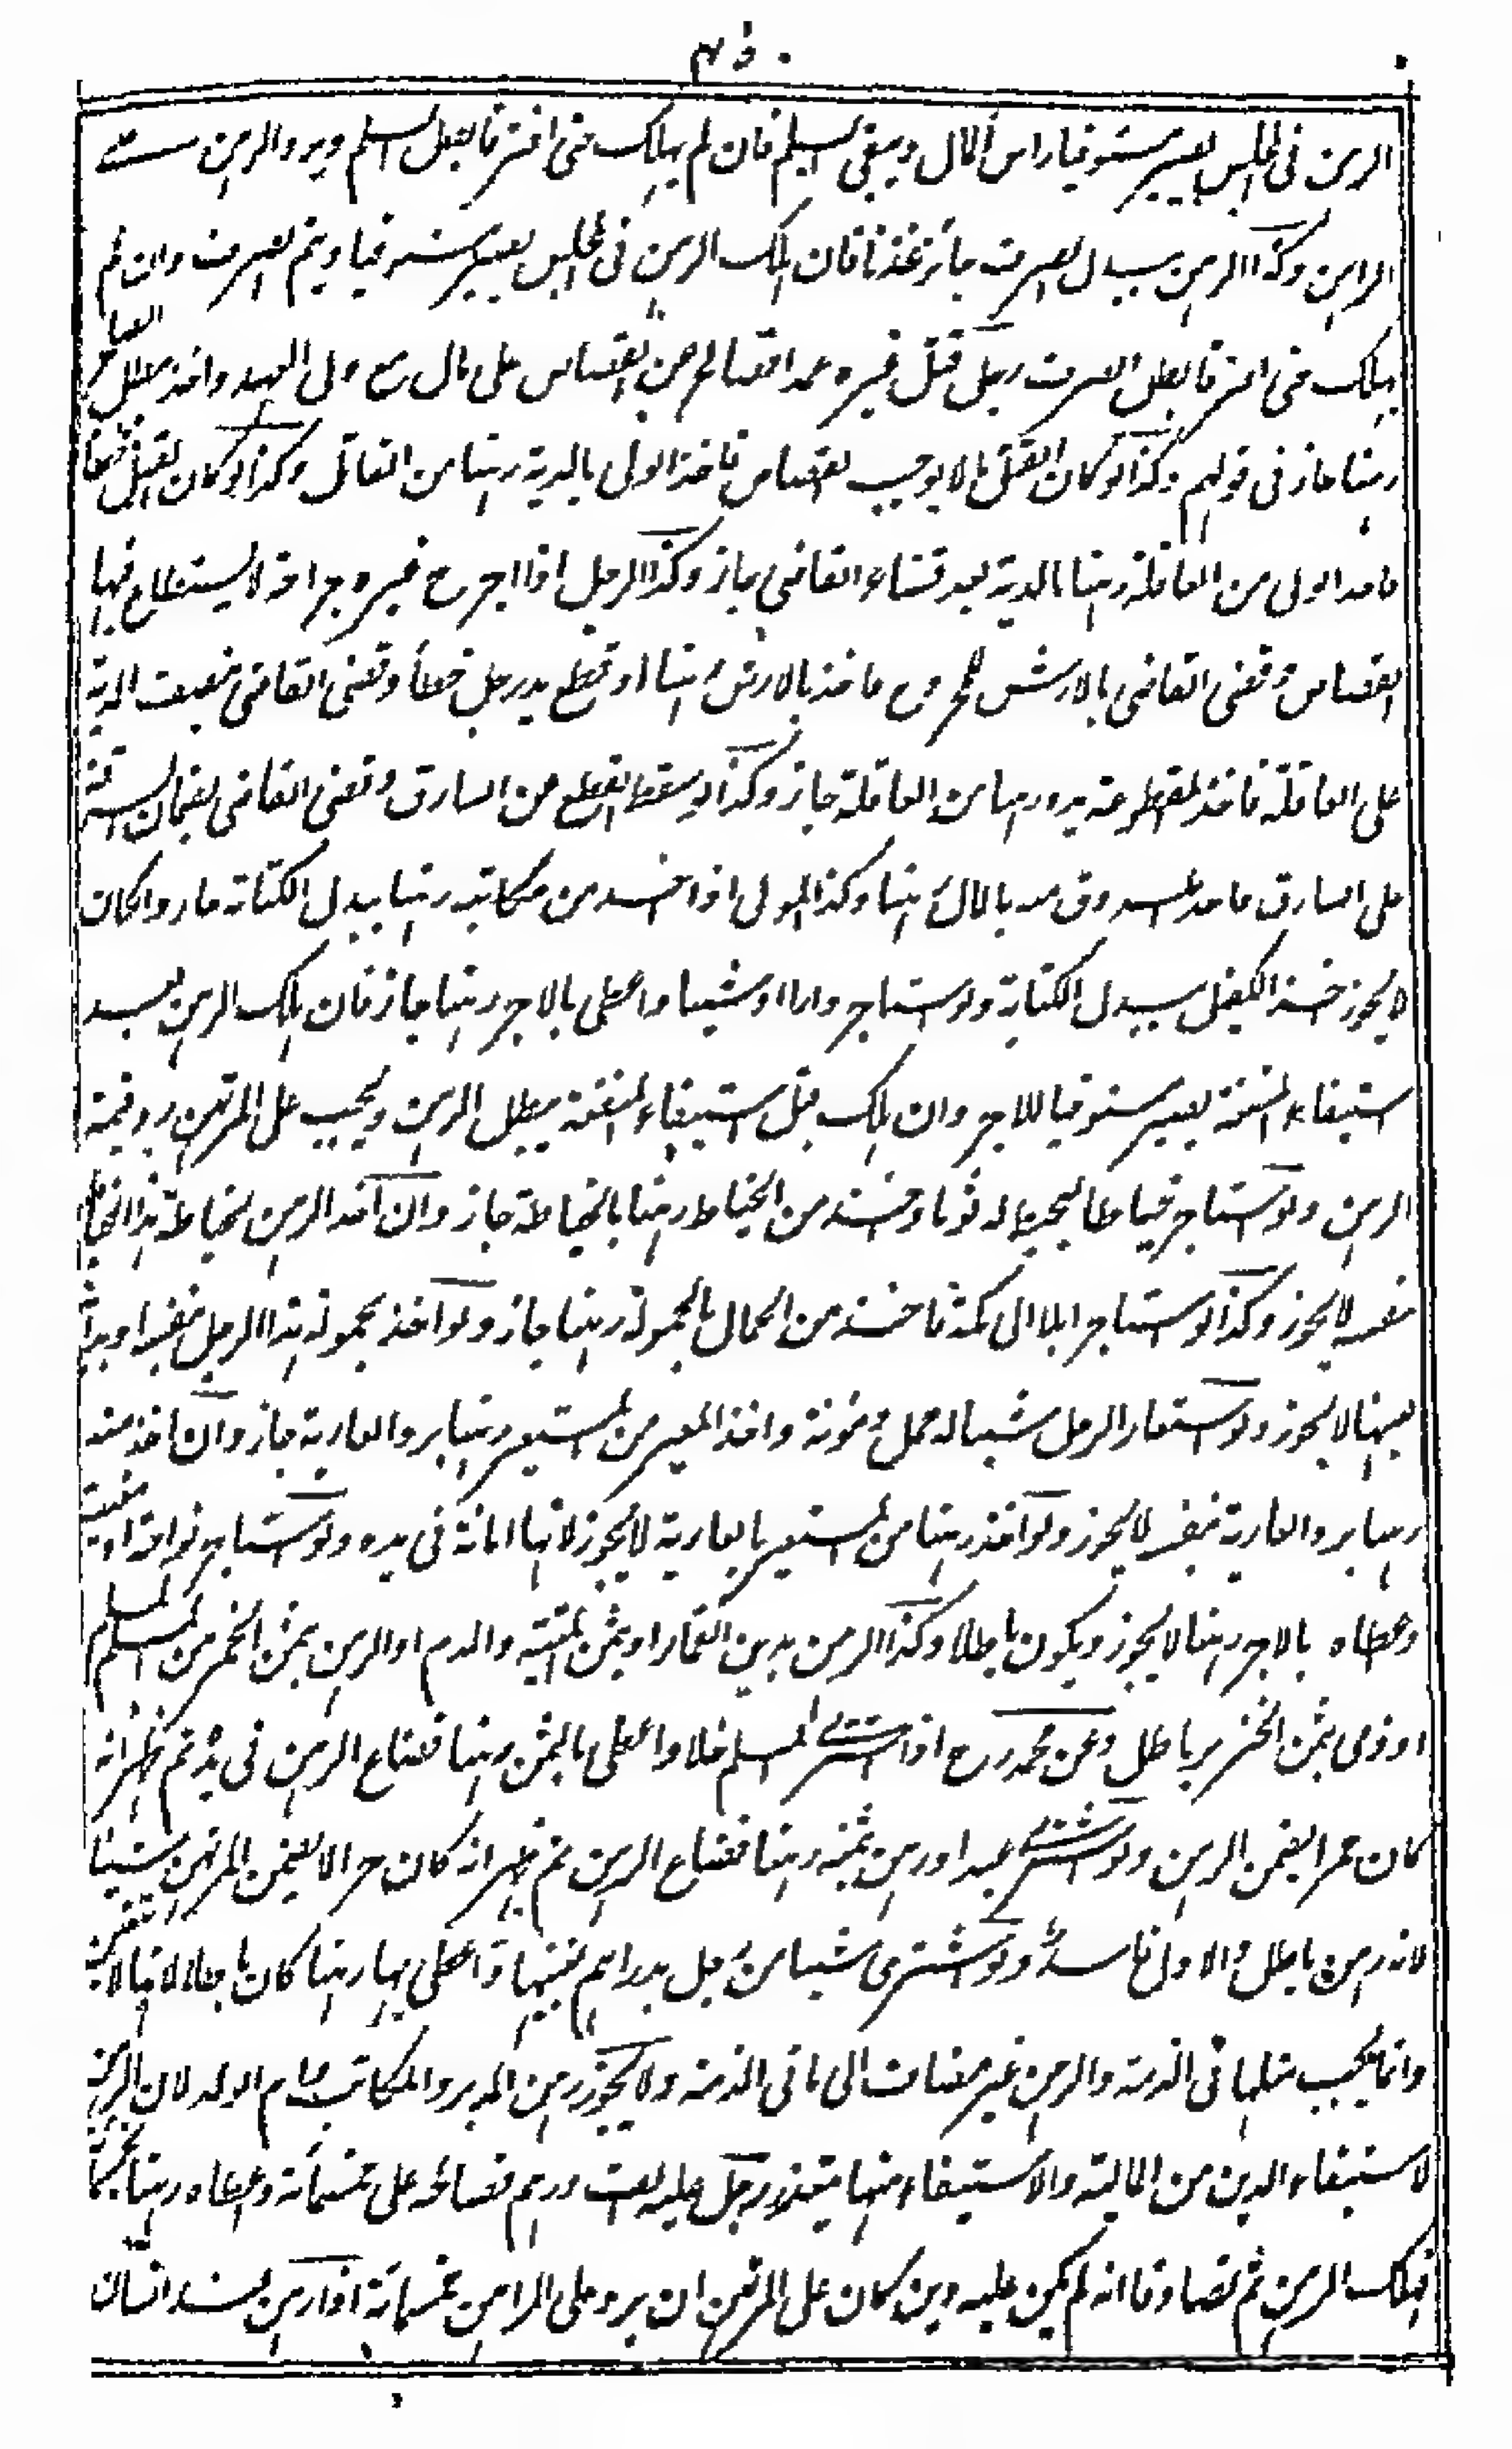 الرهن فى المجلس يصير مستوفيا راس المال ويبقى السلم فان لم يهلك حتى افترقا بطل السلم ويرد الرهن على
الراهن وكذا الرهن ببدل الصرف جائز عندنا فان هلك الرهن فى المجلس يصير مستوفيا ويتم الصرف وان لم
يهلك حتى افترقا بطل الصرف رجل قتل غيره عمدا فصالح عن القصاص على مال مع ولى العهد واخذ بدل الصلح
رهنا جاز فى قولهم وكذا لو كان القتل لا يوجب القصاص فاخذ الولى بالدية رهنا من القاتل وكذا لو كان القتل خطأ
فاخذ الولى من العاقلة رهنا بالدية بعد قضاء القاضى جاز وكذا الرجل اذا جرح غيره جراحة لا يستطاع فيها
القصاص وقضى القاضى بالارش للمجروح فاخذ بالارش رهنا او قطع يد رجل خطأ وقضى القاضى بنصف الدية
على العاقلة فاخذ المقطوعة يده رهنا من العاقلة جاز وكذا لو سقط القطع عن السارق وقضى القاضى بضمان السرقة
على السارق فاخذ المسروق منه بالمال رهنا وكذا المولى اذا اخذ من مكاتبه رهنا ببدل الكتابة جاز وان كان
لا يجوز اخذ الكفيل ببدل الكتابة ولو استاجر دارا او شيئا واعطى بالاجر رهنا جاز فان هلك الرهن بعد
استيفاء المنفعة يصير مستوفيا للاجر وان هلك قبل استيفاء المنفعة يبطل الرهن ويجب على المرتهن رد قيمة
الرهن ولو استاجر خياطا ليخيط له ثوبا واخذ من الخياط رهنا بالخياطة جاز وان اخذ الرهن بخياطة هذا الخياط
بنفسه لا يجوز وكذا لو استاجر ابلا الى مكة فاخذ من الحمال بالحمولة رهنا جاز ولو اخذ بحمولة هذا الرجل بنفسه او بدابة
بعينها لا يجوز ولو استعار الرجل شيئا له حمل ومؤنة واخذ المعير من المستعير رهنا برد العارية جاز وان اخذ منه
رهنا برد العارية بنفسه لا يجوز ولو اخذ رهنا من المستعير بالعارية لا يجوز لانها امانة فى يده ولو استاجر نواحة او مغنية
واعطاه بالاجر رهنا لا يجوز ويكون باطلا وكذا الرهن بدين القمار او بثمن الميتة والدم او الرهن بثمن الخمر من المسلم لمسلم
او ذمى بثمن الخنزير باطل وعن محمد رح اذا اشترى المسلم خلا واعطى بالثمن رهنا فضاع الرهن فى يده ثم ظهر انه
كان خمرا يضمن الرهن ولو اشترى عبدا ورهن بثمنه رهنا فضاع الرهن ثم ظهر انه كان حرا لا يضمن المرتهن شيئا
لانه رهن باطل والاول فاسد ولو اشترى شيئا من رجل بدراهم بعينها واعطى بها رهنا كان باطلا لانها لا تتعين
وانما يجب مثلها فى الذمة والرهن غير مضاف الى ما فى الذمة ولا يجوز رهن المدبر والمكاتب وام الولد لان الرهن
لاستيفاء الدين من المالية والاستيفاء منها متعذر رجل عليه الف درهم فصالحه على خمسمائة واعطاه رهنا بخمسمائة
فهلك الرهن ثم تصادقا انه لم يكن عليه دين كان على المرتهن ان يرد على الراهن خمسمائة اذا رهن عند انسان